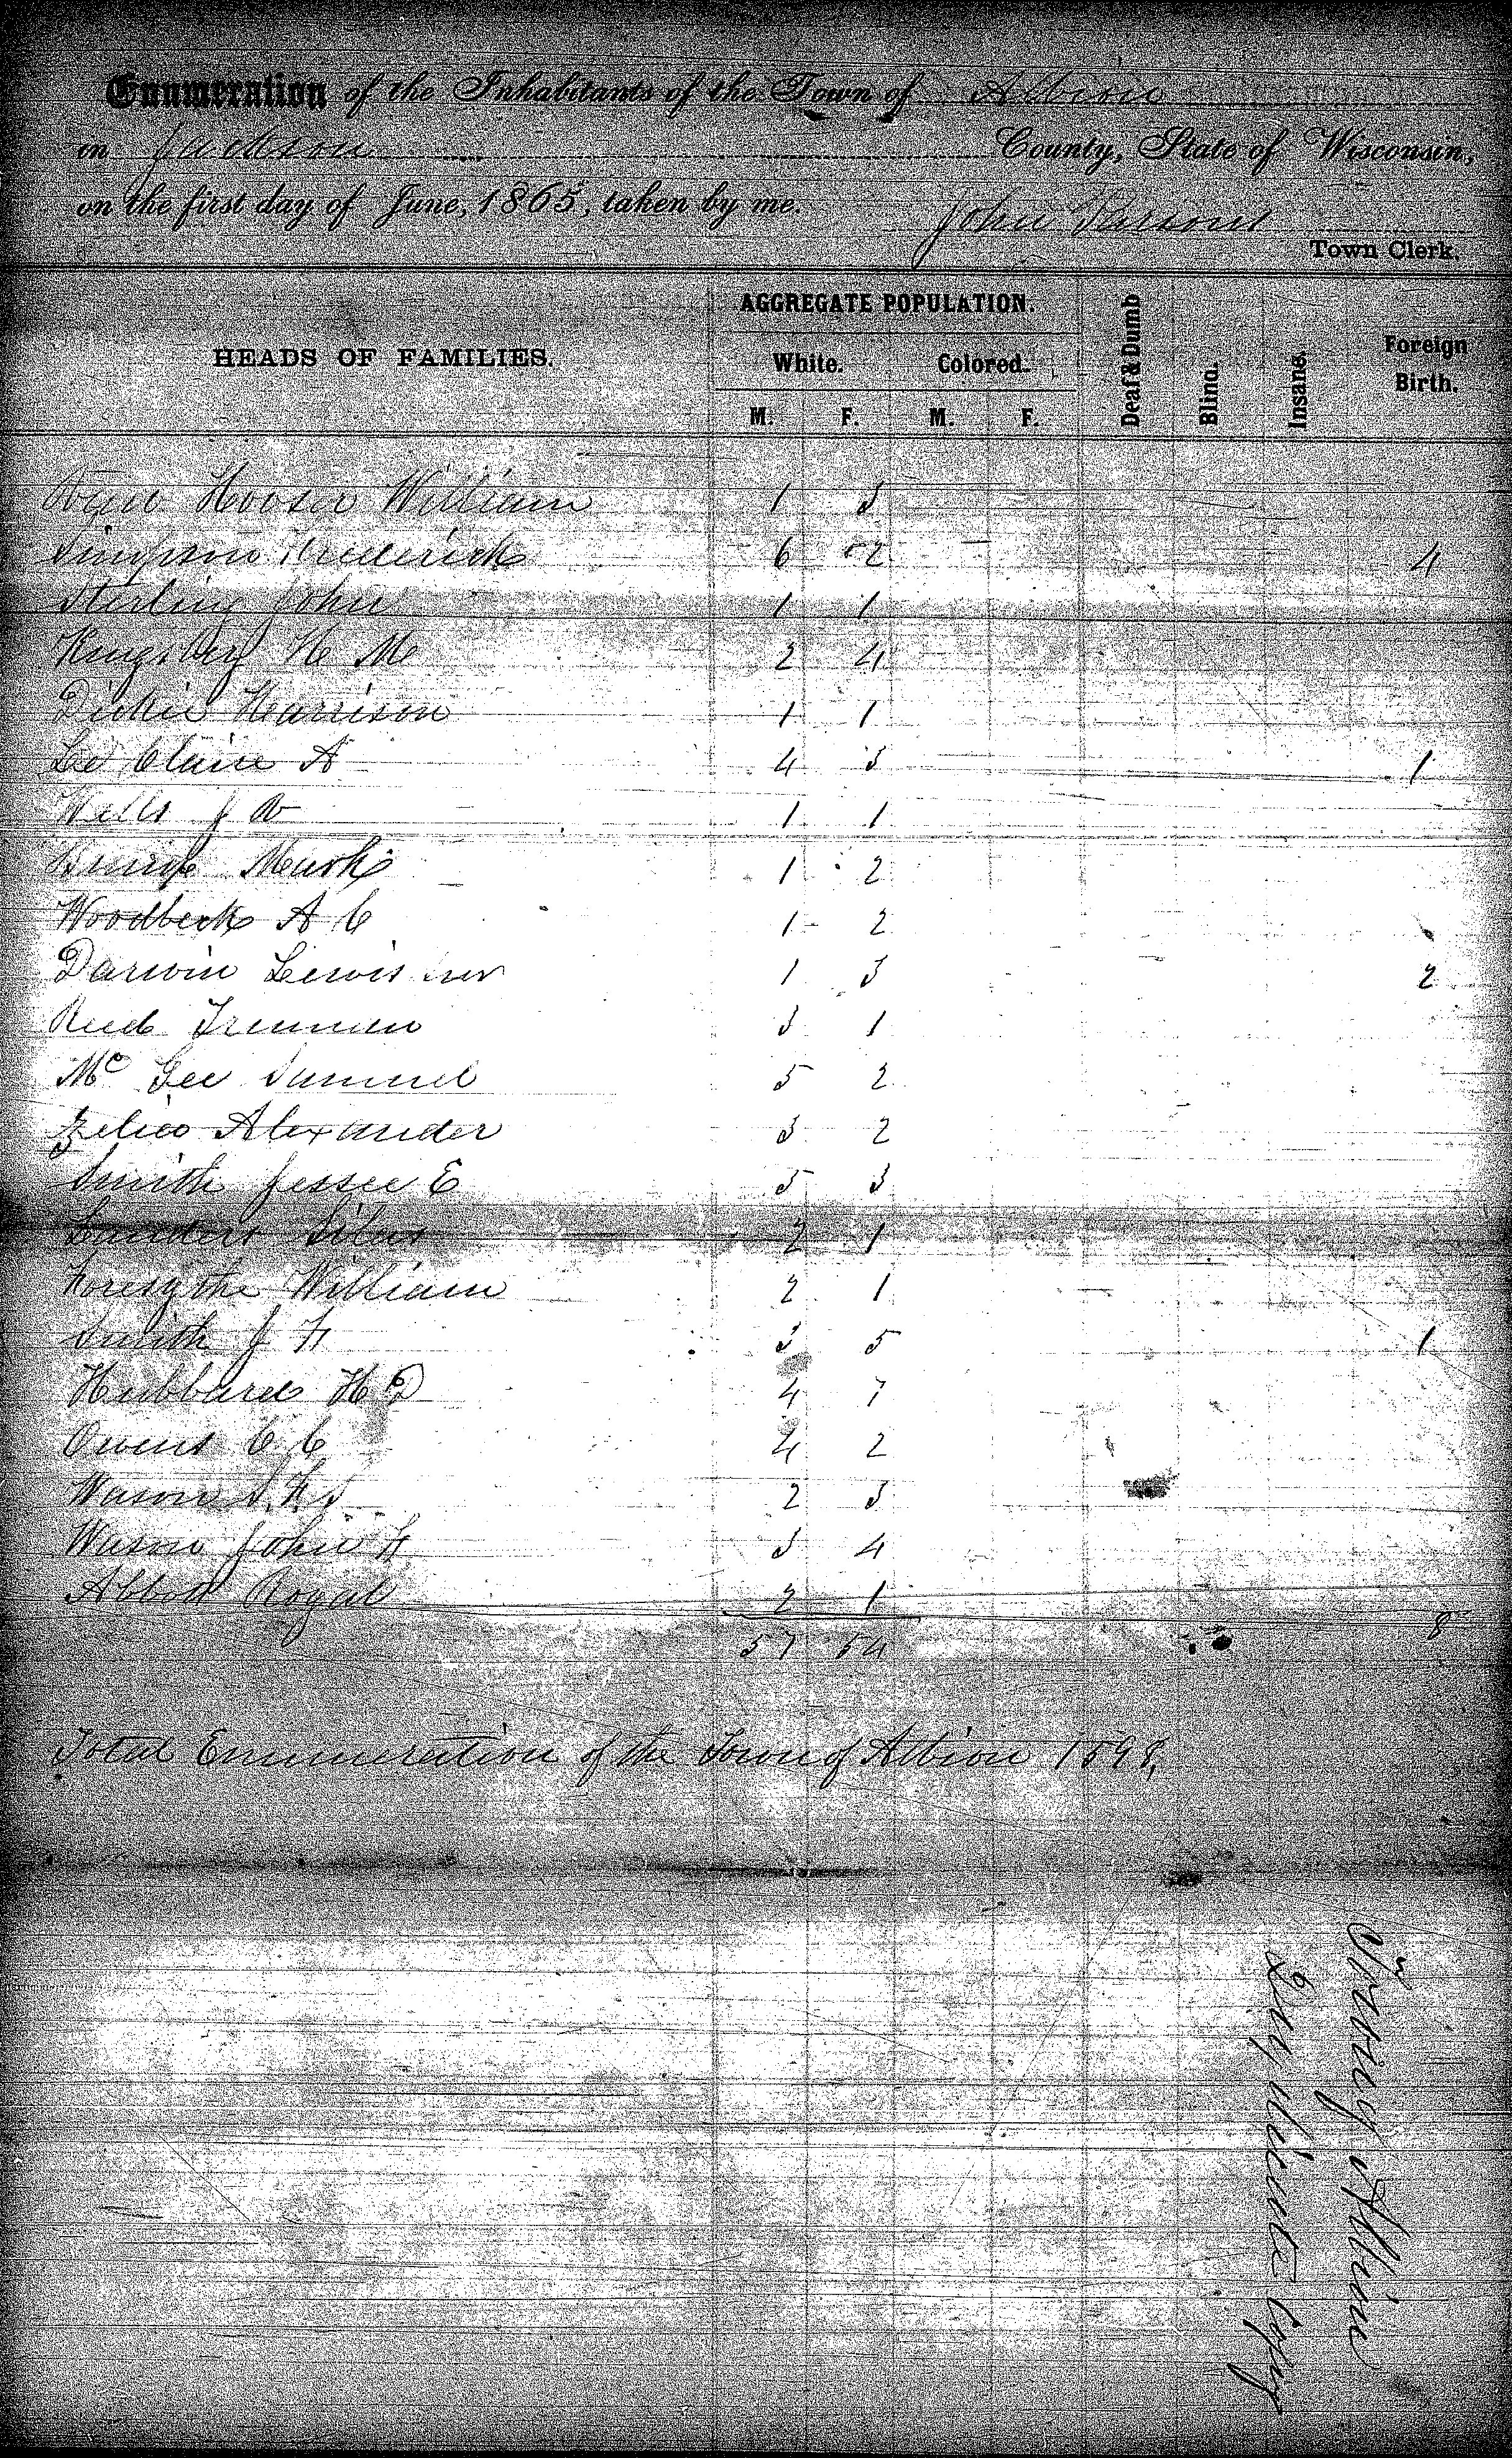 Enumeration of the Inhabitants of the Town of Albion
in Jackson County, State of Wisconsin,
on the first day of June, 1865, taken by me.
John Parsons
Town Clerk.
HEADS OF FAMILIES. AGGREGATE POPULATION. Deaf & Dumb Blind. Insane. Foreign Birth.
White. Colored.
M. F. M. F.
Hooser William 1 3
Simpson Frederick 6 2 4
Sterling John 1 1
Kingsbery H M 2 4
Dickie Harrison 1 1
Le Claire A 4 3 1
Wells J 1 1
1 2
Woodbeck A C 1 2
Darwin Lewis 1 3 2
Reed Truman 3 1
Mc Gee Samuel 5 2
Alexander 3 2
Smith Jessee E 5 3
Landers Silas 2 1
Foresythe William 2 1
Smith J F 3 5 1
Hubbard H D 4 7
Owens C C 4 2
Wason S. F. S 2 3
Wason John F 3 4
Abbott Royal 2 1
57 54 8
Total Enumeration of the Town of Albion 1598,
Town of Albion
Copy